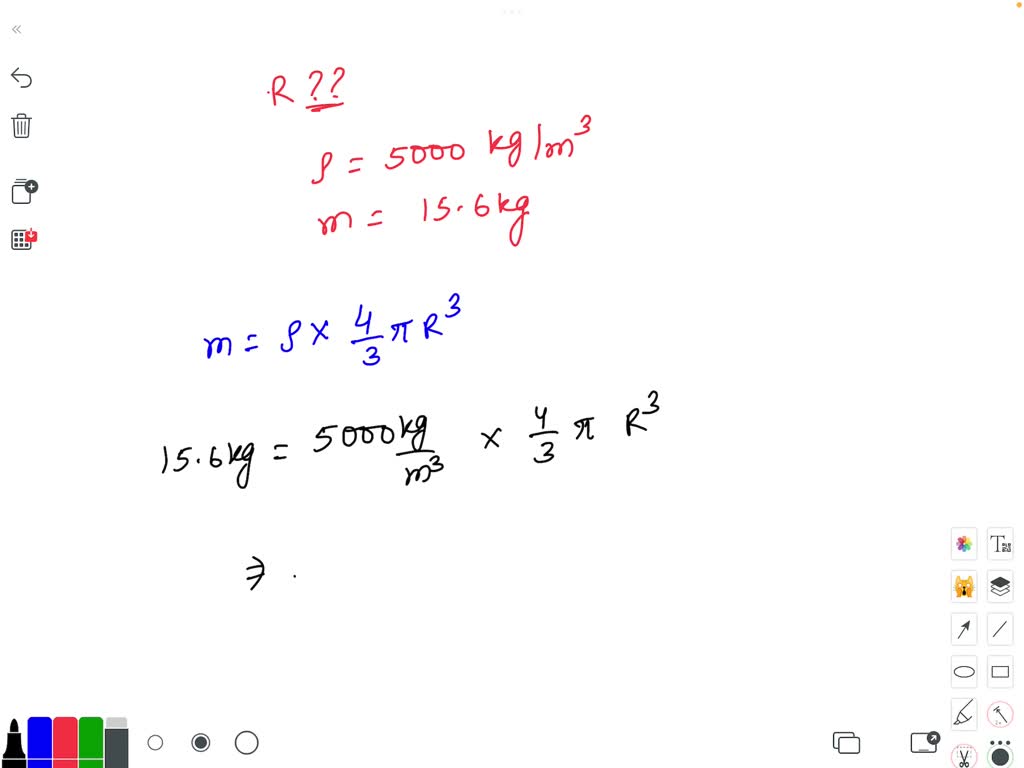 R ??
ρ = 5000 kg/m³
m = 15.6 kg
m = ρ × 4/3 π R³
15.6 kg = 5000 kg/m³ × 4/3 π R³
⇒ .